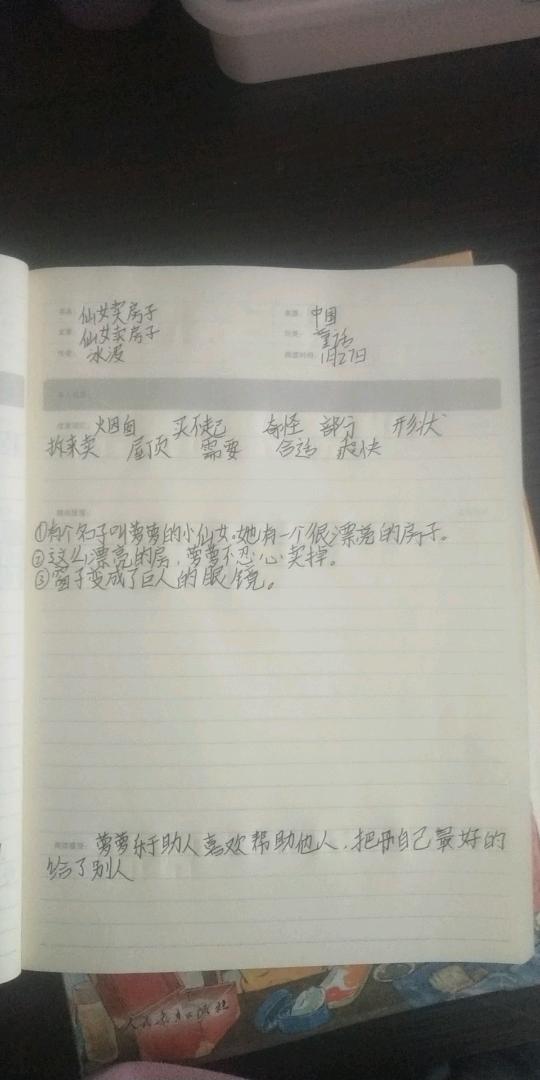 书名： 仙女卖房子
来源： 中国
文章： 仙女卖房子
分类： 童话
作者： 冰波
阅读时间： 1月27日
好词词汇： 烟囱 买不起 奇怪 部行 形状
拆来卖 屋顶 需要 合适 爽快
①有个名子叫萝萝的小仙女。她有一个很漂亮的房子。
②这么漂亮的房，萝萝不忍心卖掉。
③窗子变成了巨人的眼镜。
阅读感悟： 萝萝乐于助人喜欢帮助他人，把自己最好的
给了别人